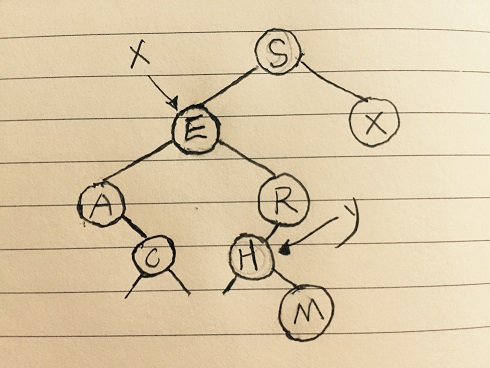 S
X
E
X
A
R
y
C
H
M